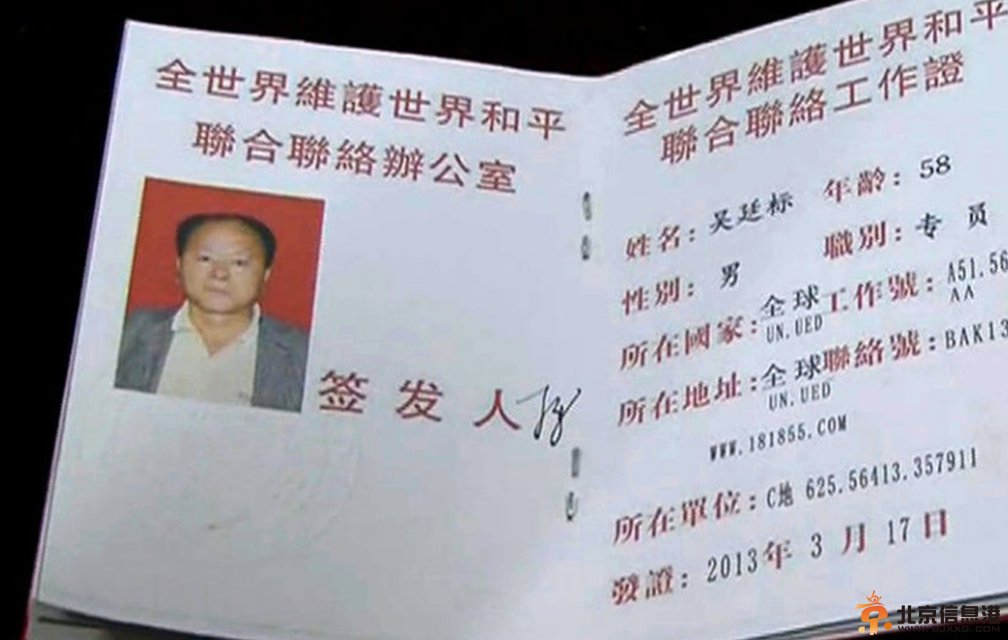 全世界維護世界和平
聯合聯絡辦公室
签发人
全世界維護世界和平
聯合聯絡工作證
姓名：吴廷标 年齡：58
性别：男 職别：专员
所在國家：全球 UN.UED 工作號：A51.56 AA
所在地址：全球 UN.UED 聯絡號：BAK13
WWW.181855.COM
所在單位：C地 625.56413.357911
發證：2013年3月17日
北京信息港